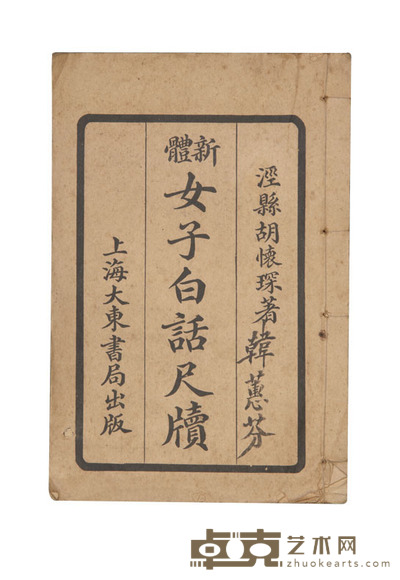 涇縣胡懷琛著
韓蕙芬
新體
女子白話尺牘
上海大東書局出版
卓克艺术网
zhuokearts.com